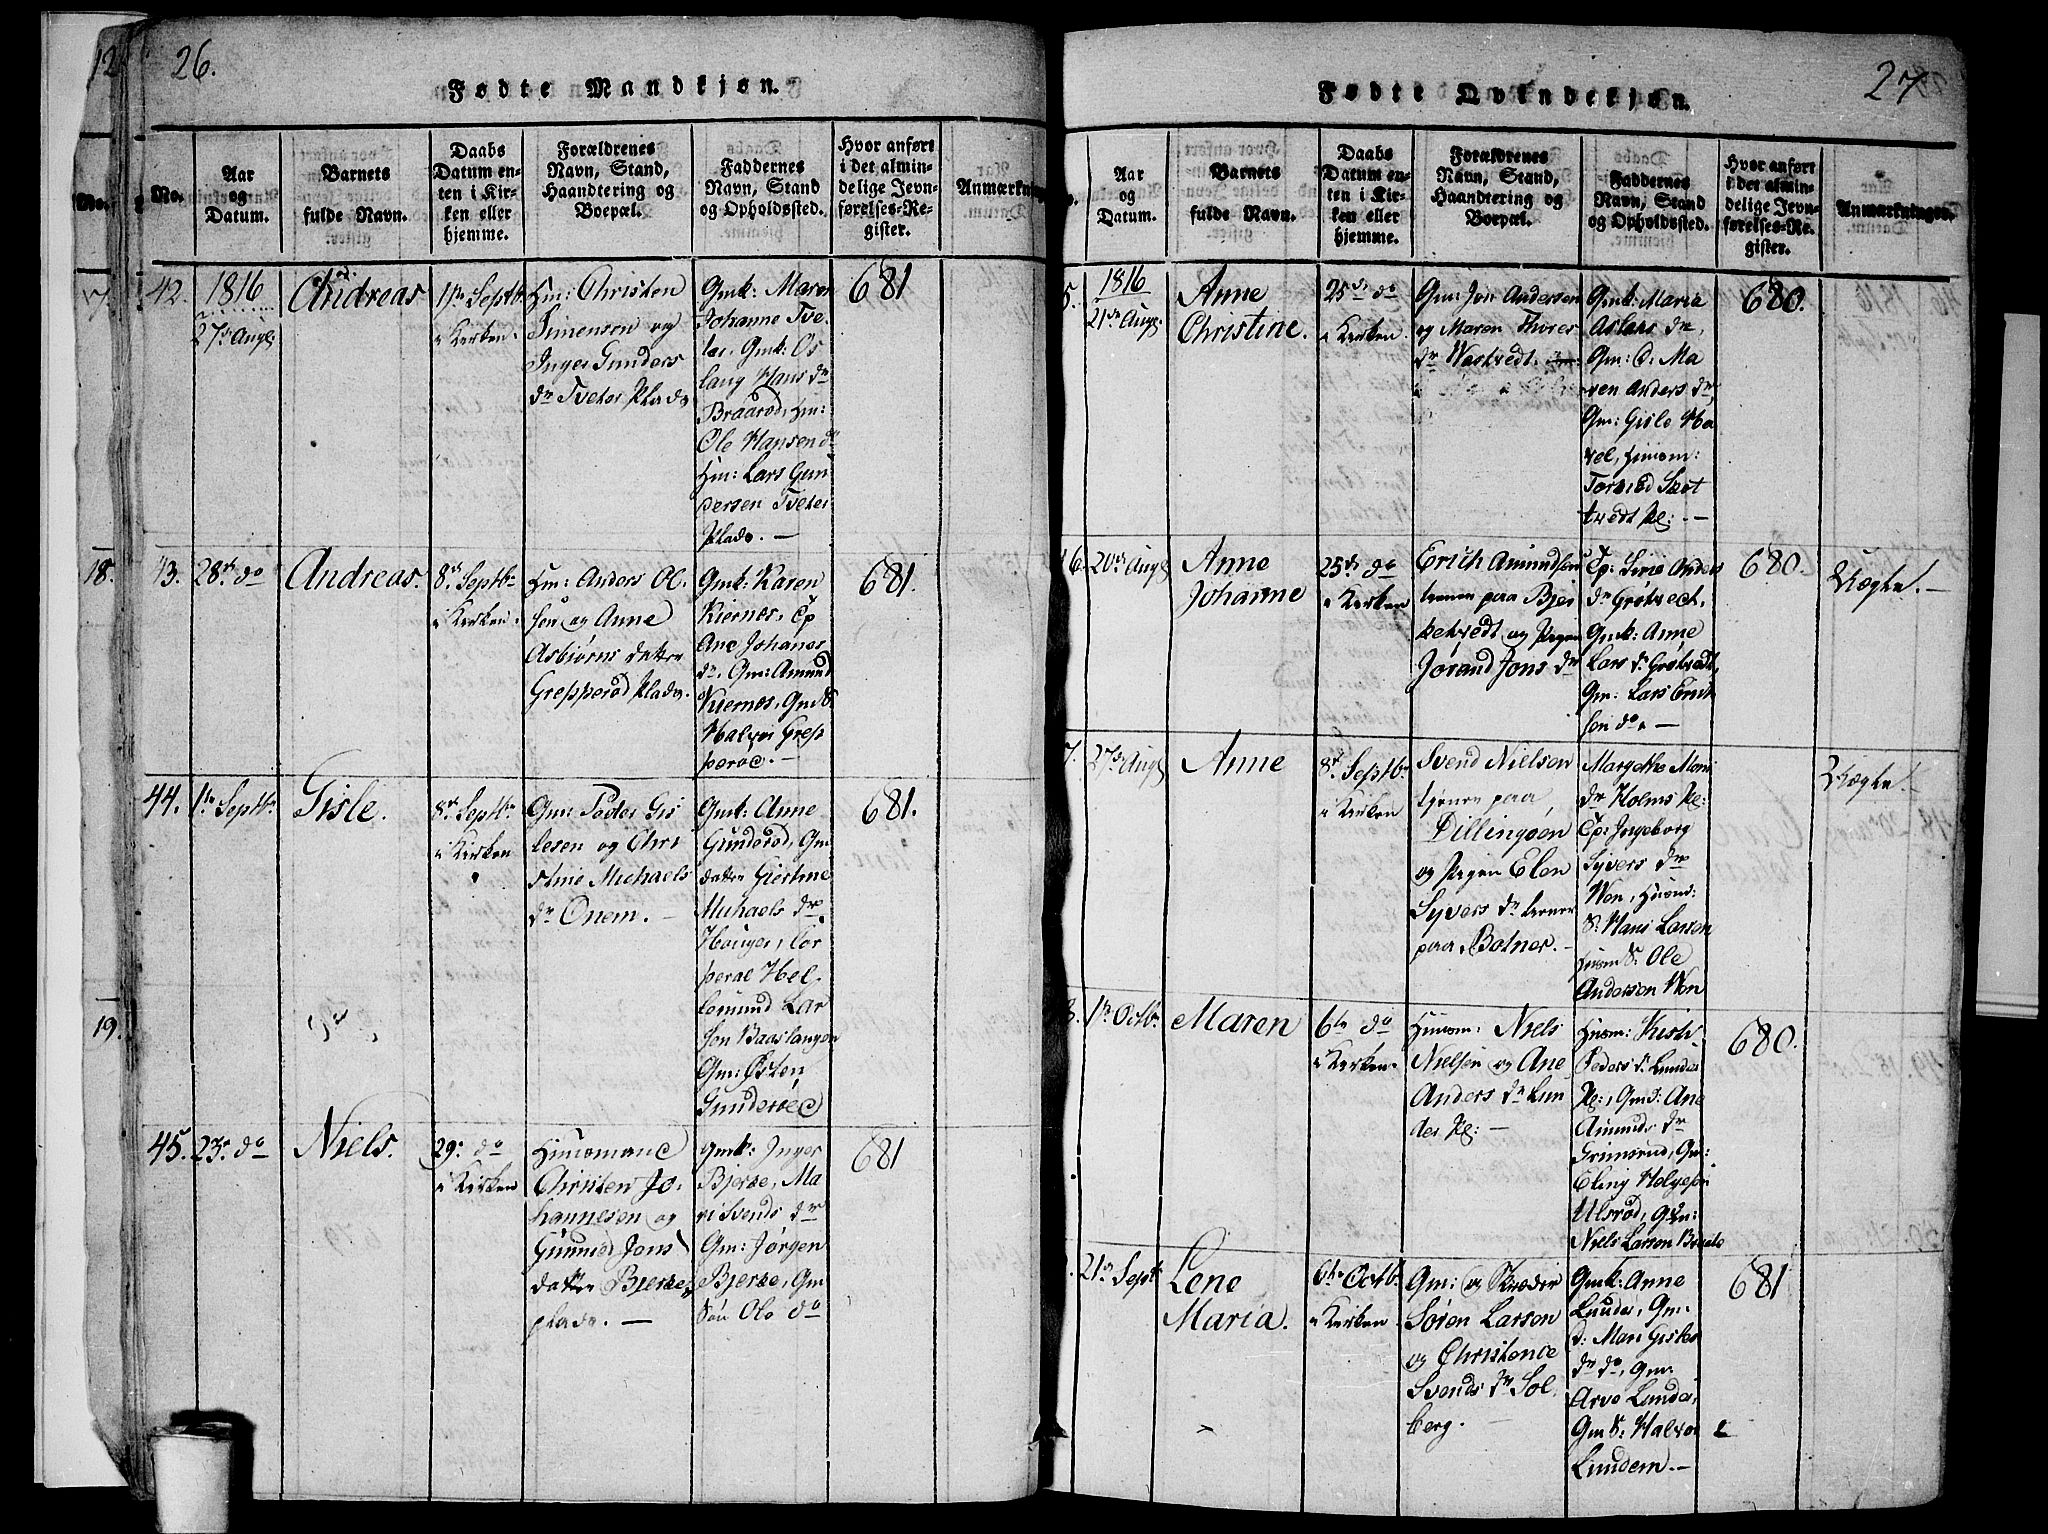 26.
Fødte Mandkjøn.
No.
Aar
og
Datum.
Barnets
fulde Navn.
Daabs
Datum en-
ten i Kir-
ken eller
hjemme.
Forældrenes
Navn, Stand,
Haandtering og
Boepæl.
Faddernes
Navn, Stand
og Opholdssted.
Hvor anført
i det almin-
delige Jevn-
førelses-Re-
gister.
Anmærkning
42.
1816
27de Aug.
Andreas
1ste Septbr.
i Kirken.
Hm: Christen
Simensen og
Inger Gunders
dr Tveter Plads
Gmk: Maren
Johanne Tve-
ter, Gmk: Os
laug Hans dr
Braarød, Hm:
Ole Hansen do
Hm: Lars Gun
dersen Tveter
Plads. —
681
43.
28de do
Andreas.
8de Septbr
i Kirken.
Hm: Anders Ol
sen og Anne
Asbjørns datter
Grepperød Plads.
Gmk: Karen
Kiernes, Tp
Ane Johanes
dr, Gm: Amund
Kiernes, Gm S.
Halvor Grep
perød. —
681.
44.
1ste Septbr.
Gisle.
8de Septbr
i Kirken
Gm: Peder Gis
lesen og Chri
stine Michaels
dr Onem. —
Gmk: Anne
Gunderød, Gm
datter Giertine
Michaels dr
Houger, Cor
poral Hel
Lemund Lar
sen Baaslangen
Gm: Østen
Gunderød
681.
45.
23. do
Niels.
29. do
i Kirken
Huusmand
Christen Jo-
hannesen og
Gunnild Jons
datter Bjerke
plads. —
Gmk: Inger
Bjerke, Ma
ri Svends dr
Gm: Jørgen
Bjerke, Gm
Søn Ole do
681
27
Fødte Qvindekjøn.
Aar
og
Datum.
Barnets
fulde Navn.
Daabs
Datum en-
ten i Kir-
ken eller
hjemme.
Forældrenes
Navn, Stand,
Haandtering og
Boepæl.
Faddernes
Navn, Stand
og Opholdssted.
Hvor anført
i det almin-
delige Jevn-
førelses-Re-
gister.
Anmærkninger.
5.
1816
21de Aug.
Anne
Christine.
25de do
i Kirken.
Gm: Jon Andersen
og Maren Thores
dr Westvedt.
Gmk: Maria
Aslaks dr,
Gm: d: Ma
ren Anders dr,
Gm: Gisle Ha
vel, Huusm:
Torkild Sløt
tvedt Pl: —
680.
16.
20de Aug
Anne
Johanne
25de do
i Kirken
Erich Amundsen
tienene paa Bjer
ketvedt og Pigen
Jørand Jons dr
Tp: Siri Anders
dr Grøtvedt,
Gmk: Anne
Lars dr Grøtvedt,
Gm: Lars Erich
sen do. —
680.
Uægte! —
7.
27de Aug
Anne
8de Septbr
i Kirken
Svend Nielsen
tjenene paa
Dillingøen
og Pigen Elen
Syvers dr tienene
paa Botner. —
Margethe Mons
dr Holms Pl:
Tp: Ingeborg
Syvers dr
Won, Huusm:
S: Hans Larsen
Huusm S: Ole
Andersen Won
Uægte!
8.
1ste Octbr.
Maren
6te do
i Kirken
Huusm: Niels
Nielsen og Ane
Anders dr Lun
der Pl: —
Huusm: Kisti
Peders dr Lunder
Pl:, Gm d: Ane
Amunds dr
Grimsrud, Gm:
Eling Helgesen
Ulsrød, Gm:
Niels Larsen
680.
21de Septbr
Lene
Maria.
6te Octbr.
i Kirken
Gm: og Skræder
Søren Larsen
og Christence
Svends dr Sol
berg. —
Gmk: Anne
Lunder, Gm.
d: Mari Gisles
dr do, Gm:
Arve Lunder,
Gm S: Halvor
Lundem. —
681